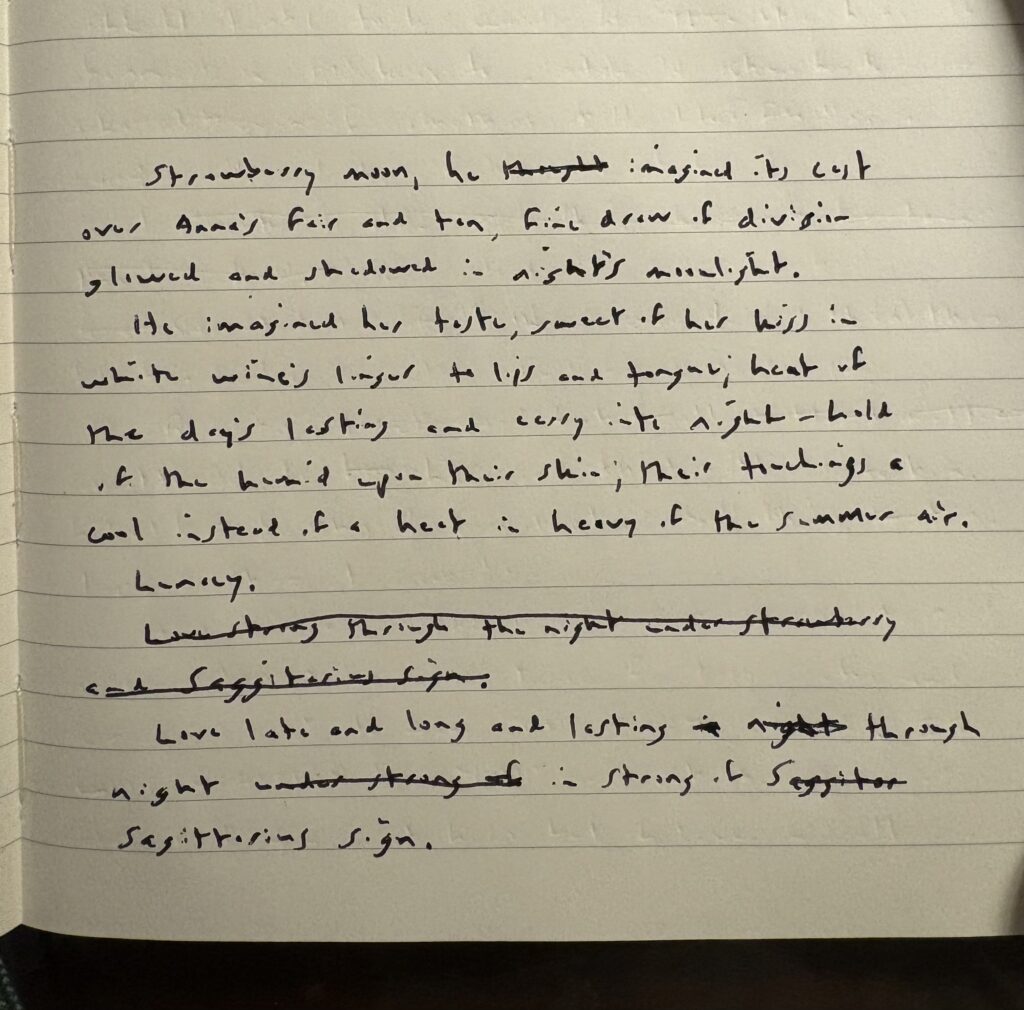 Strawberry moon, he thought imagined its cast
over Anna's fair and tan, fine draw of division
glowed and shadowed in night's moonlight.
He imagined her taste, sweet of her kiss in
white wine's linger to lips and tongue; heat of
the day's lasting and carry into night – hold
of the humid upon their skin; their touchings a
cool instead of a heat in heavy of the summer air.
Lunacy.
Love strong through the night under strawberry
and Saggitarius sign.
Love late and long and lasting in night through
night under strong of in strong of Saggitar
Sagittarius sign.